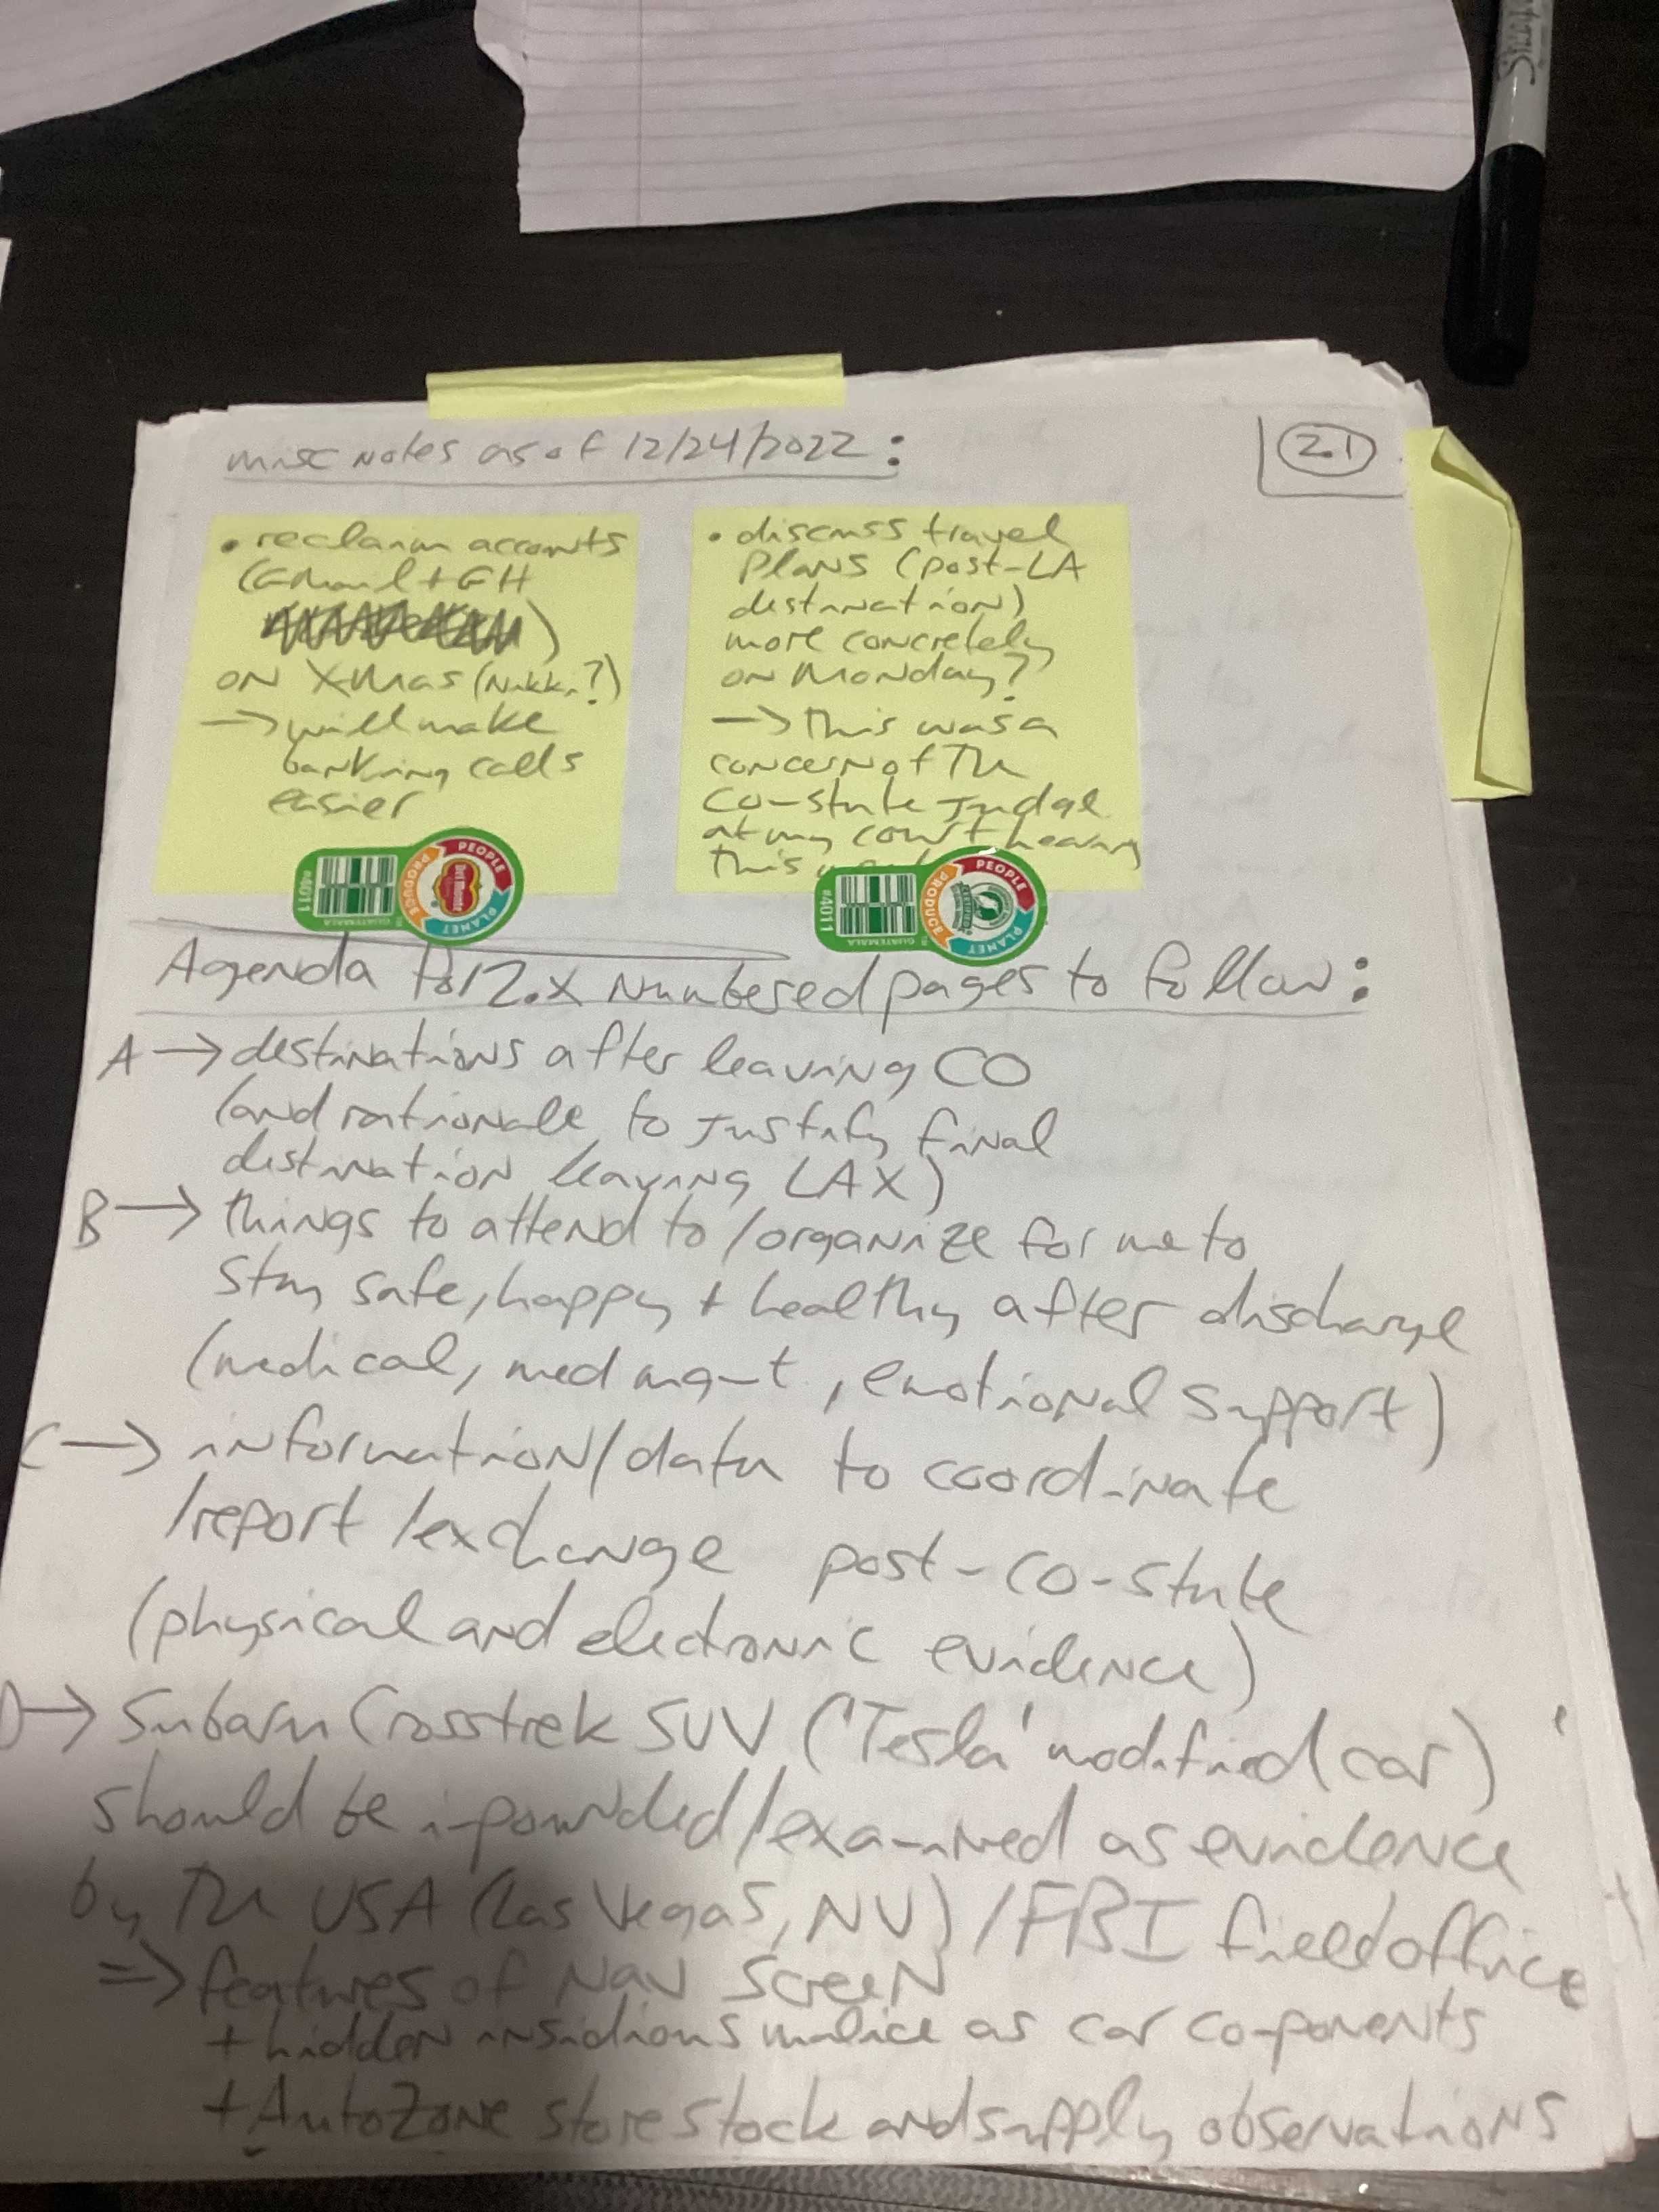 Sharpie
misc notes as of 12/24/2022:
2.1
• reclaim accounts
(GMail + GH
)
ON XMas (Nikki?)
→ will make
banking calls
easier
• discuss travel
Plans (post-LA
destination)
more concretely
on Monday?
→ this was a
concern of the
CO-state judge
at my court hearing
this
PEOPLE
PLANET
PRODUCE
Del Monte
#4011
GUATEMALA
PEOPLE
PLANET
PRODUCE
#4011
GUATEMALA
Agenda for 2.x Numbered pages to follow:
A → destinations after leaving CO
(and rationale to justify final
destination leaving LAX)
B → things to attend to/organize for me to
stay safe, happy + healthy after discharge
(medical, med mgmt, emotional support)
C → information/data to coordinate
/report/exchange post-CO-state
(physical and electronic evidence)
D → Subaru Crosstrek SUV ('Tesla' modified car)
should be impounded/examined as evidence
by the USA (Las Vegas, NV)/FBI field office
⇒ features of Nav Screen
+ hidden insidious malice as car components
+ AutoZone store stock and supply observations